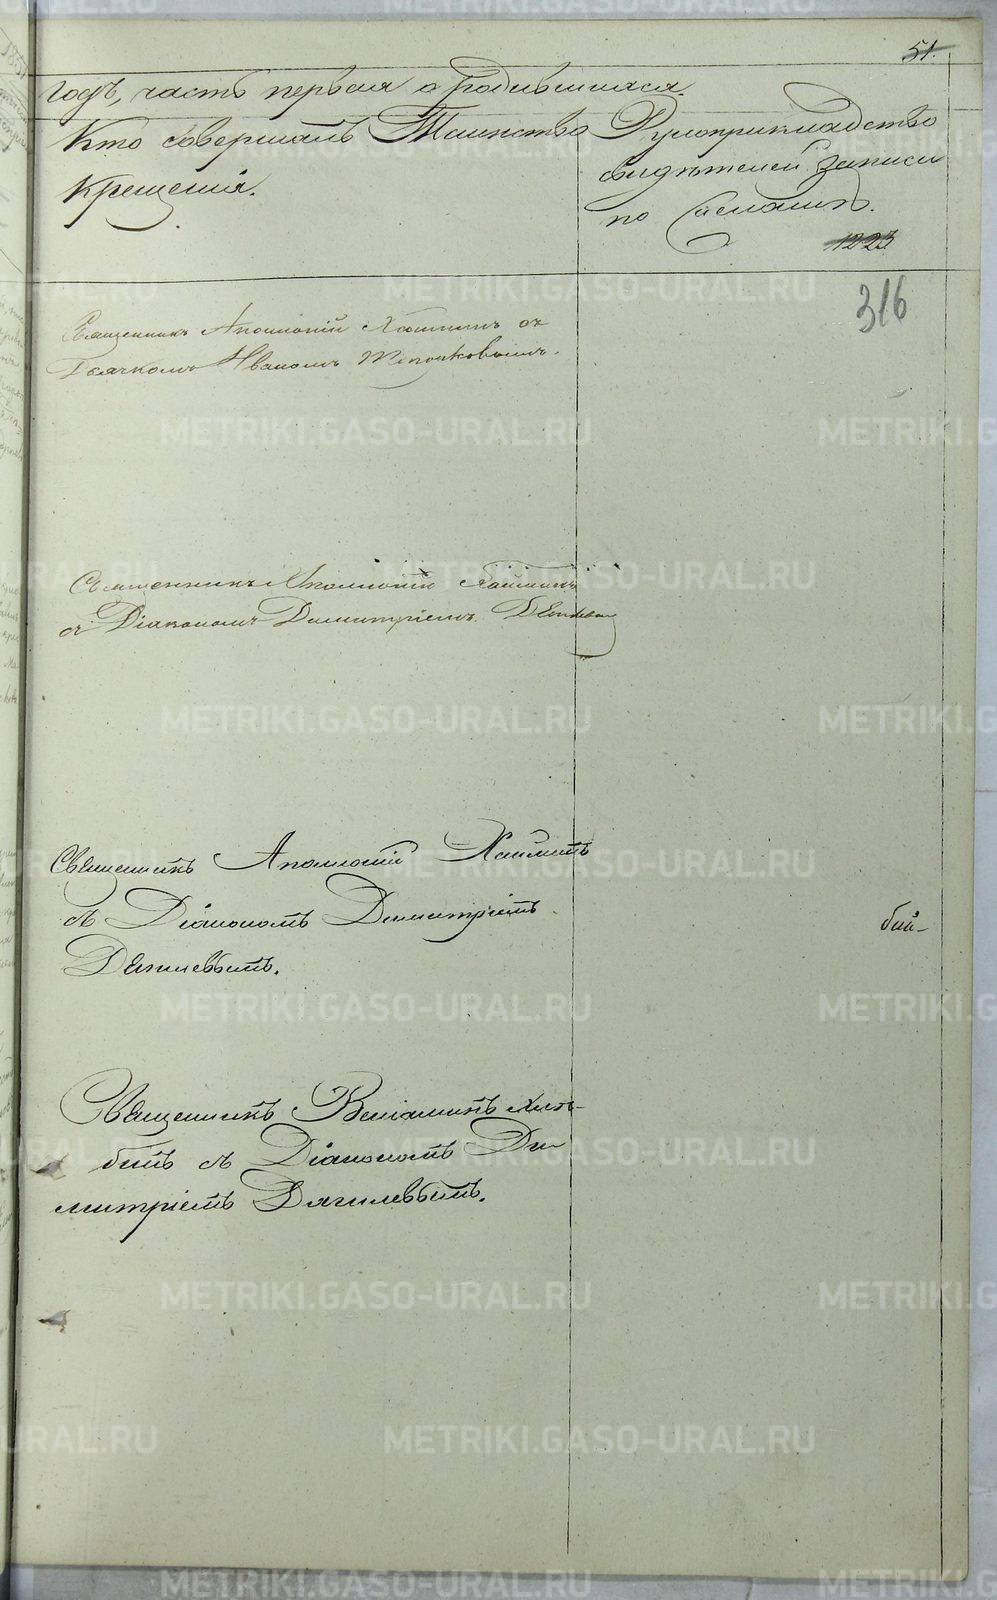 51.
годъ, часть первая о родившихся.
Кто совершалъ Таинство
крещенія.
Рукоприкладство
свидѣтелей записи
по желанію.
1223
316
Священникъ Аполлоній Хлынинъ съ
Дьячкомъ Иваномъ
Священникъ Аполлоній
съ Діакономъ Димитріемъ
Священникъ Аполлоній
съ Діакономъ Димитріемъ
Дягилевымъ.
бий-
Священникъ Веніаминъ Хлѣ-
бинъ съ Діакономъ Ди
митріемъ Дягилевымъ.
METRIKI.GASO-URAL.RU